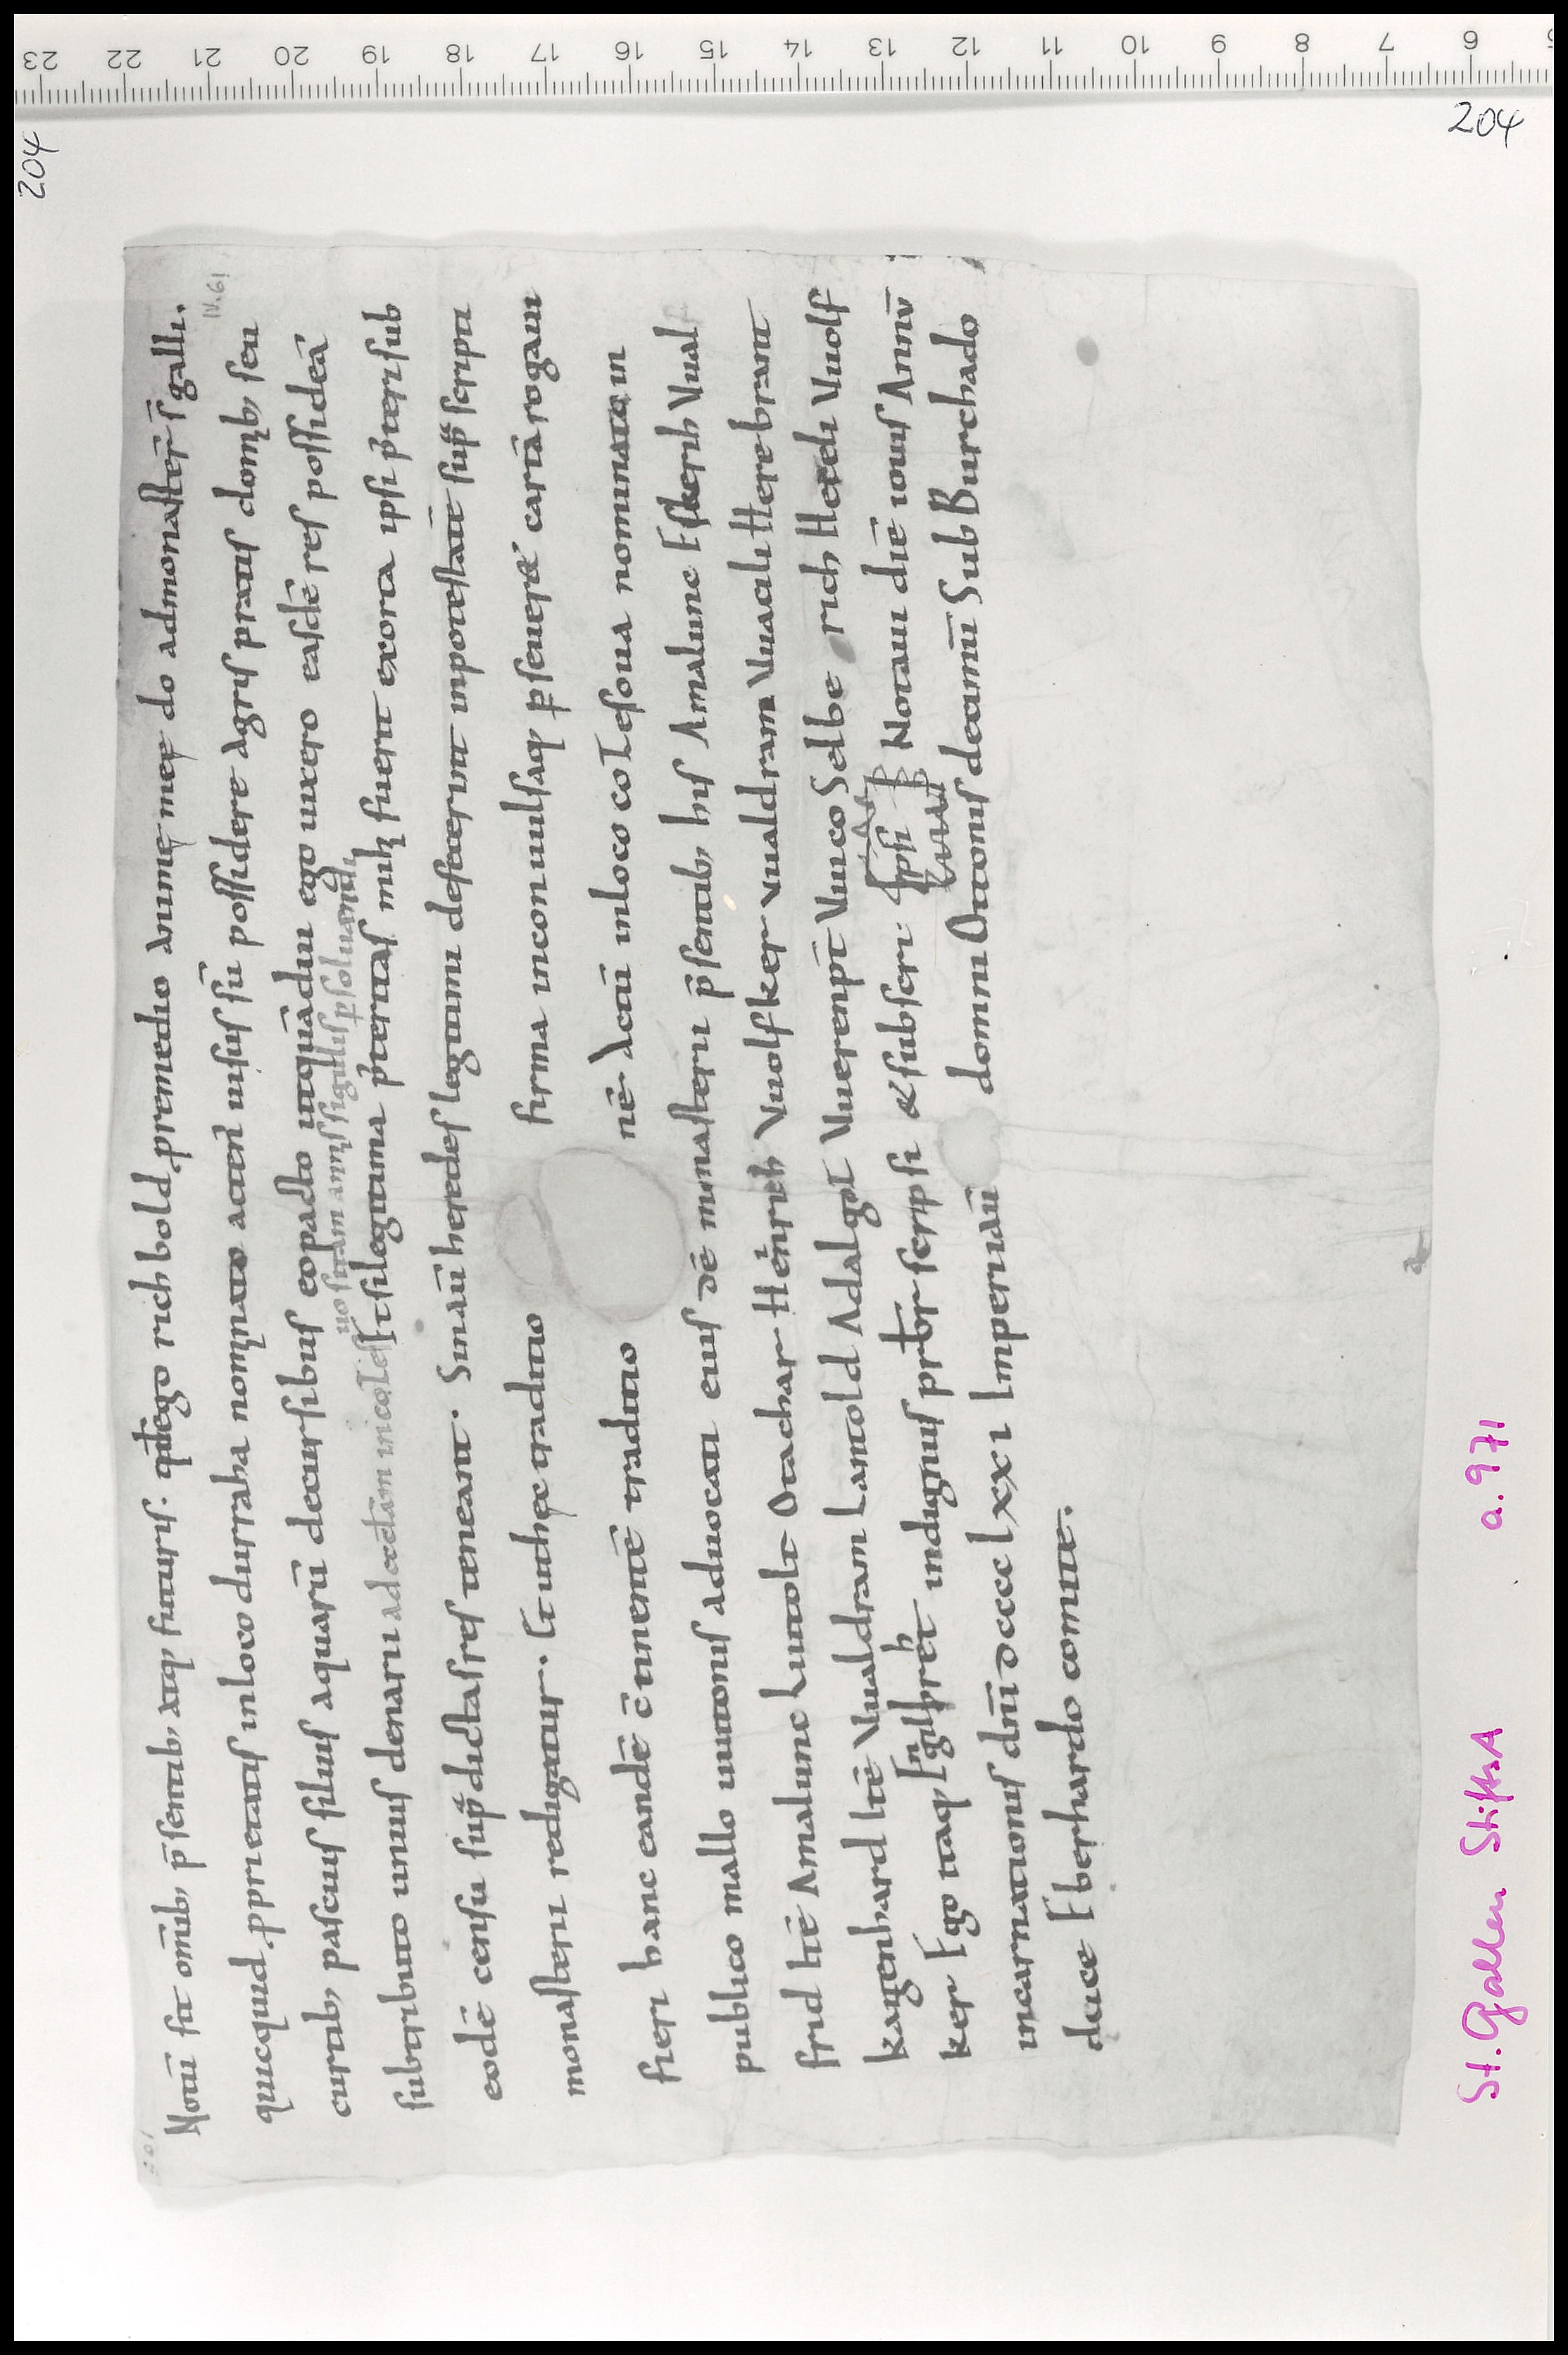 23 22 21 20 19 18 17 16 15 14 13 12 11 10 9 8 7 6
204
204
IV.61
Notū sit omīb; p̄sentib; atq; futuris. qđ ego richbold p remedio animę meę do ad monasteri͂ s͂ galli.
quicquid pprietatis in loco durraha nominato acten͂ uisus sū possidere agris pratis domib; seu
curtib; pascuis siluis aquarū decursibus eo pacto ut quādiu ego uixero easdē res possideā
uo sitam annis sigulis psoluend͂
sub tributo unius denarii ad ęctam in coLesꝰ Et si legitima p͂teritas mih fuerit exorta ipsi p͂teri sub
eodē censu sup͂ dictas res teneant. Sin aū heredes legitimi defecerint in potestatē sup͂ scripti
monasterii redigatur. Et ut hęc traditio firma inconuulsaq; pseueret cartā rogaui
fieri hanc eandē c̄tinentē traditio nē. Actū in loco coLesoua nominato in
publico mallo uuitonis aduocati eius dē mūnasterii p̄sentib; his Amalunc Eskerih Vual
frid Itē Amalunc Luitolt Otachar Henrih Vuolfker vualdram Vuacili Herebrant
kagenhard Itē Vualdram Lantold Adalgot Vuerenpt͂ Vuico Selbe rich Heredi Vuolf
ker Ego itaq; Engilpreht indignus prbr͂ scripsi & subscri psi Notaui diē iouis Annū
incarnationis dn̄i dcccc lxxi Imperiaū domni Ottonis decimū Sub Burchado
duce Eberhardo comite.
St. Gallen StiftsA a. 971